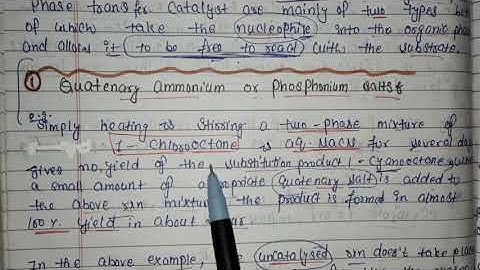 Phase transfer Catalyst are mainly of two types both
of which take the nucleophile into the organic phase
and allows it to be free to react with the substrate.
① Quatenary Ammonium or Phosphonium Salts:
e.g. Simply heating or Stirring a two-phase mixture of
1-Chlorooctane is aq. NaCN for several days
gives no yield of the substitution product 1-Cyanooctane
a small amount of appropriate quatenary salt is added to
the above rxn mixture the product is formed in almost
100% yield in about
In the above example, uncatalysed rxn doesn't take place